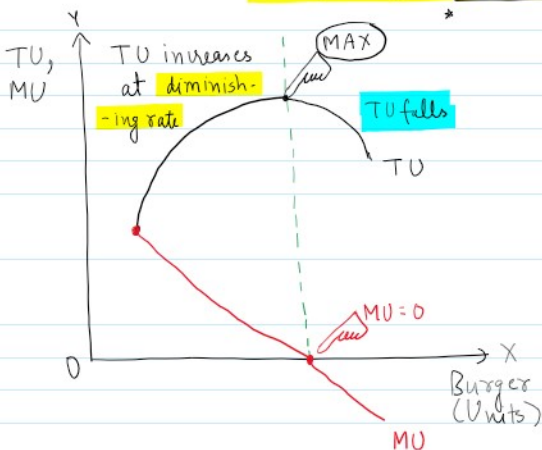 Y
*
TU,
MU
TU increases
at diminish-
-ing rate
MAX
TU falls
TU
MU = 0
O
X
Burger
(Units)
MU